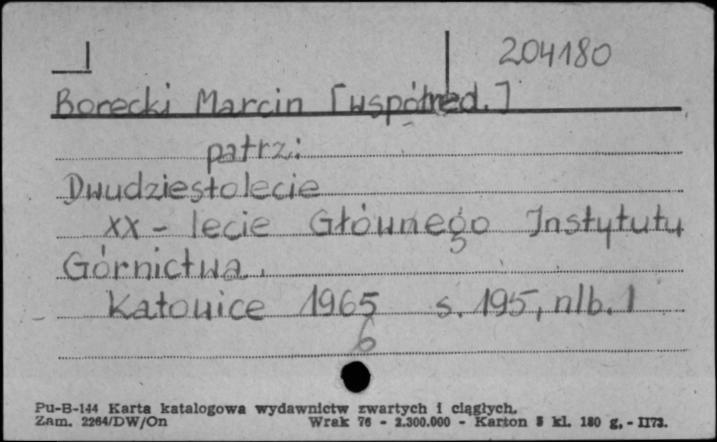 204180
Borecki Marcin [współred.]
patrz:
Dwudziestolecie
XX - lecie Głównego Instytutu
Górnictwa.
Katowice 1965 s. 195, nlb. 1
6
Pu-B-144 Karta katalogowa wydawnictw zwartych i ciągłych.
Zam. 2264/DW/On Wrak 76 - 2.300.000 - Karton 5 kl. 180 g. - II73.